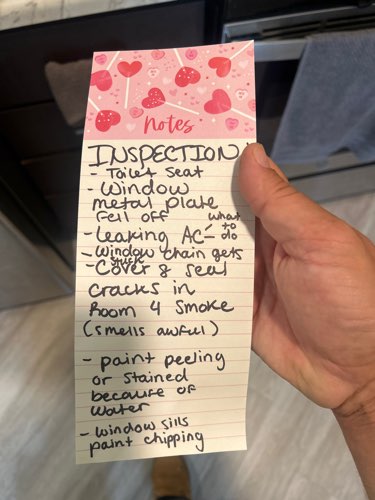 Notes
INSPECTION!
- Toilet seat
- Window
metal plate
fell off
- Leaking AC - what to do
- Window chain gets stuck
- Cover & seal
cracks in
Room 4 Smoke
(smells awful)
- paint peeling
or stained
because of
water
- window sills
paint chipping